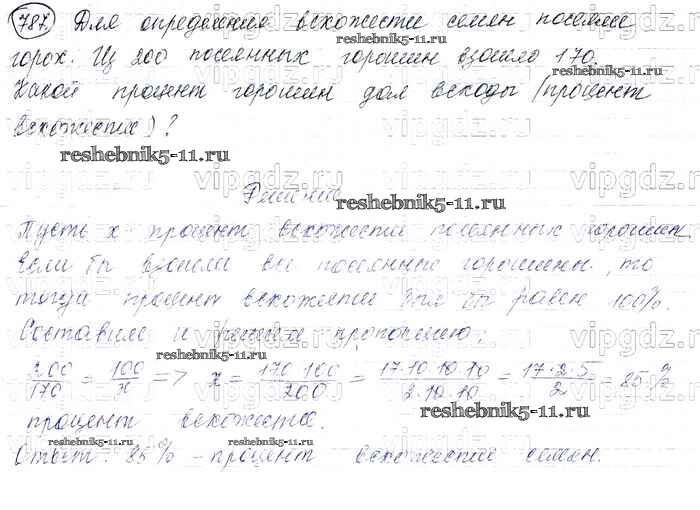 787. Для определения всхожести семян посеяли
горох. Из 200 посеянных горошин взошло 170.
Какой процент горошин дал всходы (процент
всхожести)?
Решение
Пусть x процент всхожести посеянных горошин
Если бы взошли все посеянные горошины, то
тогда процент всхожести был бы равен 100%.
Составим и решим пропорцию:
200/170 = 100/x => x = 170·100/200 = 17·10·10·10/2·10·10 = 17·2·5/2 = 85%
процент всхожести.
Ответ: 85% – процент всхожести семян.
reshebnik5-11.ru
reshebnik5-11.ru
reshebnik5-11.ru
reshebnik5-11.ru
reshebnik5-11.ru
reshebnik5-11.ru
reshebnik5-11.ru
vipgdz.ru